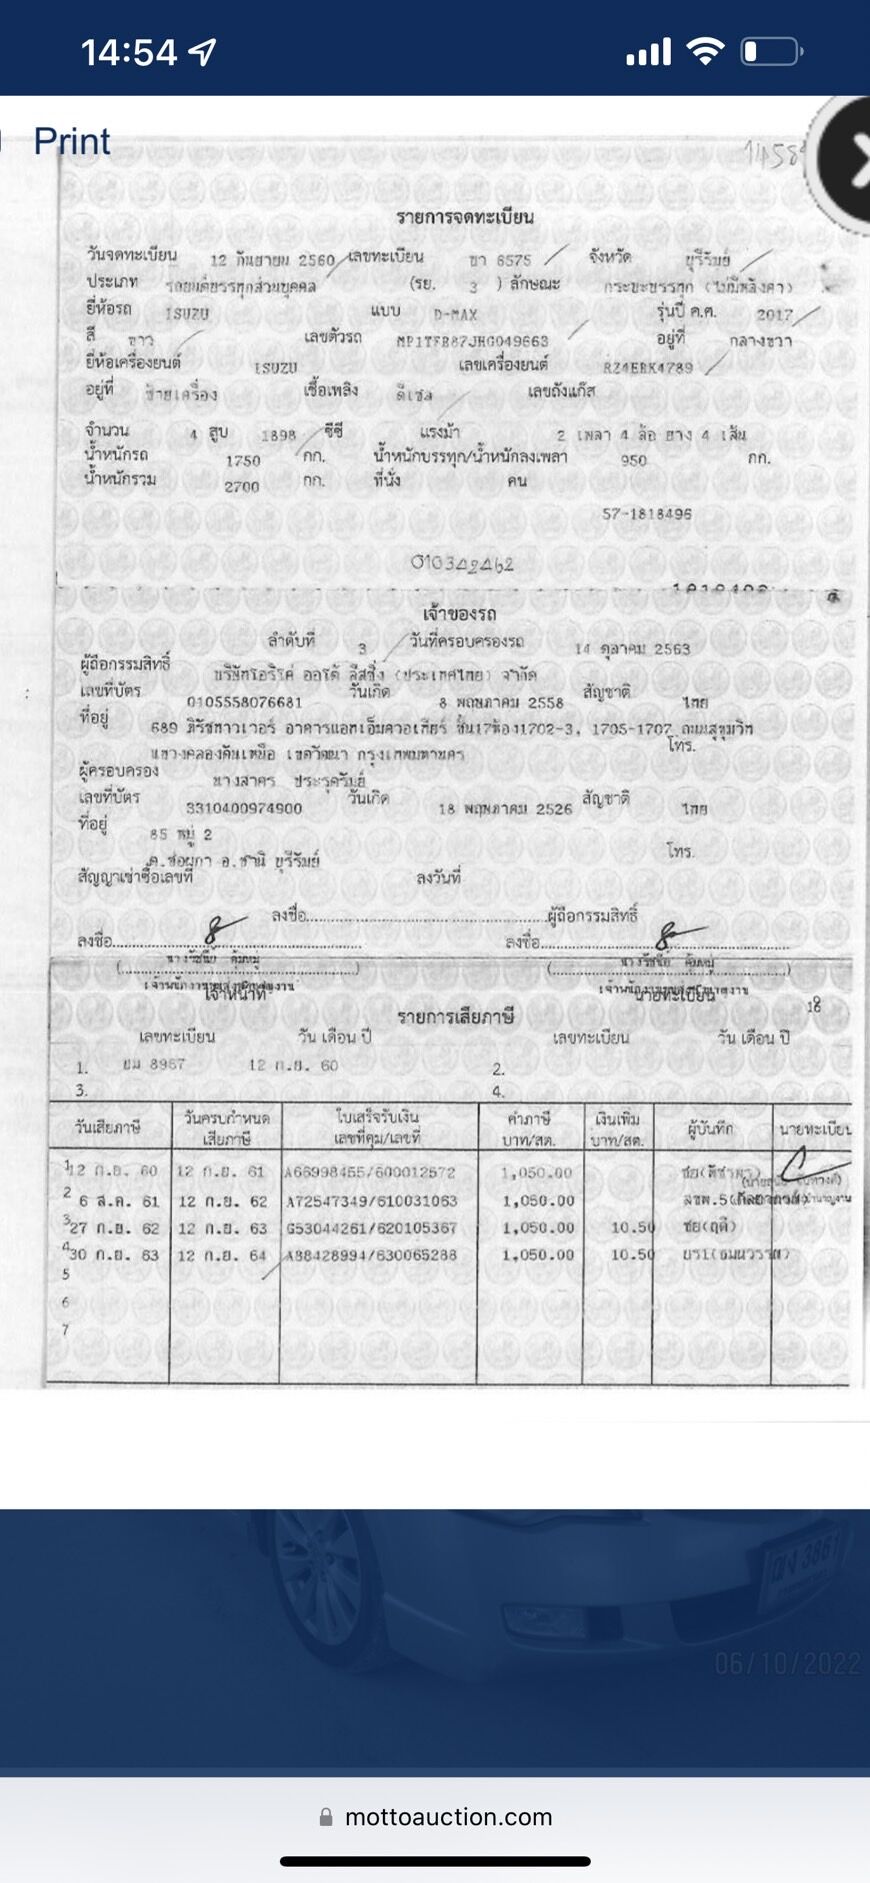 14:54
Print
รายการจดทะเบียน
วันจดทะเบียน 12 กันยายน 2560 เลขทะเบียน ขา 6575 จังหวัด บุรีรัมย์
ประเภท รถยนต์บรรทุกส่วนบุคคล (รย. 3 ) ลักษณะ กระบะบรรทุก (ไม่มีหลังคา)
ยี่ห้อรถ ISUZU แบบ D-MAX รุ่นปี ค.ศ. 2017
สี ขาว เลขตัวรถ MP1TFR87JHG049663 อยู่ที่ กลางขวา
ยี่ห้อเครื่องยนต์ ISUZU เลขเครื่องยนต์ RZ4EBK4789
อยู่ที่ ซ้ายเครื่อง เชื้อเพลิง ดีเซล เลขถังแก๊ส
จำนวน 4 สูบ 1898 ซีซี แรงม้า 2 เพลา 4 ล้อ ยาง 4 เส้น
น้ำหนักรถ 1750 กก. น้ำหนักบรรทุก/น้ำหนักลงเพลา 950 กก.
น้ำหนักรวม 2700 กก. ที่นั่ง คน
57-1818496
010342462
เจ้าของรถ
ลำดับที่ 3 วันที่ครอบครองรถ 14 ตุลาคม 2563
ผู้ถือกรรมสิทธิ์ บริษัทโอริโค่ ออโต้ ลีสซิ่ง (ประเทศไทย) จำกัด
เลขที่บัตร 0105558076681 วันเกิด 8 พฤษภาคม 2558 สัญชาติ ไทย
ที่อยู่ 689 ภิรัชทาวเวอร์ อาคารแอทเอ็มควอเทียร์ ชั้น17ห้อง1702-3, 1705-1707 ถนนสุขุมวิท
แขวงคลองตันเหนือ เขตวัฒนา กรุงเทพมหานคร โทร.
ผู้ครอบครอง นางสาคร ประรุครัมย์
เลขที่บัตร 3310400974900 วันเกิด 18 พฤษภาคม 2526 สัญชาติ ไทย
ที่อยู่ 85 หมู่ 2
ต.ช่อผกา อ.ชำนิ บุรีรัมย์ โทร.
สัญญาเช่าซื้อเลขที่ ลงวันที่
ลงชื่อ ผู้ถือกรรมสิทธิ์
ลงชื่อ ลงชื่อ
เจ้าหน้าที่ นายทะเบียน
18
รายการเสียภาษี
เลขทะเบียน วัน เดือน ปี เลขทะเบียน วัน เดือน ปี
1. ยม 8967 12 ก.ย. 60 2.
3. 4.
วันเสียภาษี วันครบกำหนดเสียภาษี ใบเสร็จรับเงิน เลขที่คุม/เลขที่ ค่าภาษี บาท/สต. เงินเพิ่ม บาท/สต. ผู้บันทึก นายทะเบียน
1 12 ก.ย. 60 12 ก.ย. 61 A66998455/600012572 1,050.00
2 6 ส.ค. 61 12 ก.ย. 62 A72547349/610031063 1,050.00
3 27 ก.ย. 62 12 ก.ย. 63 G53044261/620105367 1,050.00 10.50 ชย(ฤดี)
4 30 ก.ย. 63 12 ก.ย. 64 A88428994/630065288 1,050.00 10.50
5
6
7
06/10/2022
mottoauction.com